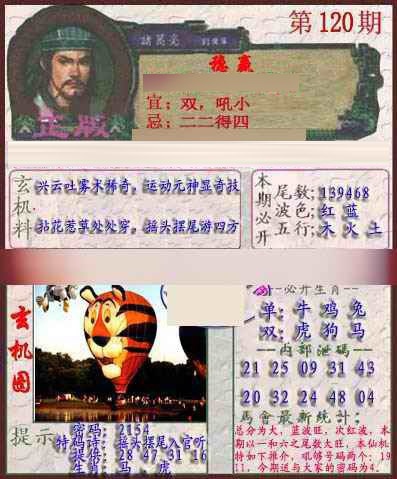 第120期
諸葛亮
稳赢
宜：双，吼小
忌：二二得四
正版
玄机料
兴云吐雾术稀奇，运动元神显奇技
拈花惹草处处穿，摇头摆尾游四方
本期必开
尾数：139468
波色：红 蓝
五行：木 火 土
必开生肖
单：牛 鸡 兔
双：虎 狗 马
内部泄码
21 25 09 31 43
20 32 24 48 04
玄机图
提示
密码：2154
特码诗：摇头摆尾入官听
提供：28 47 31 16
生肖：马、虎
馬會最新統计：
总分为大，蓝波旺，次红波，本
期以一和六之尾数大旺，本仙机
特如下推介，吼够号码两个：19
11，今期送与大家的密码为4．